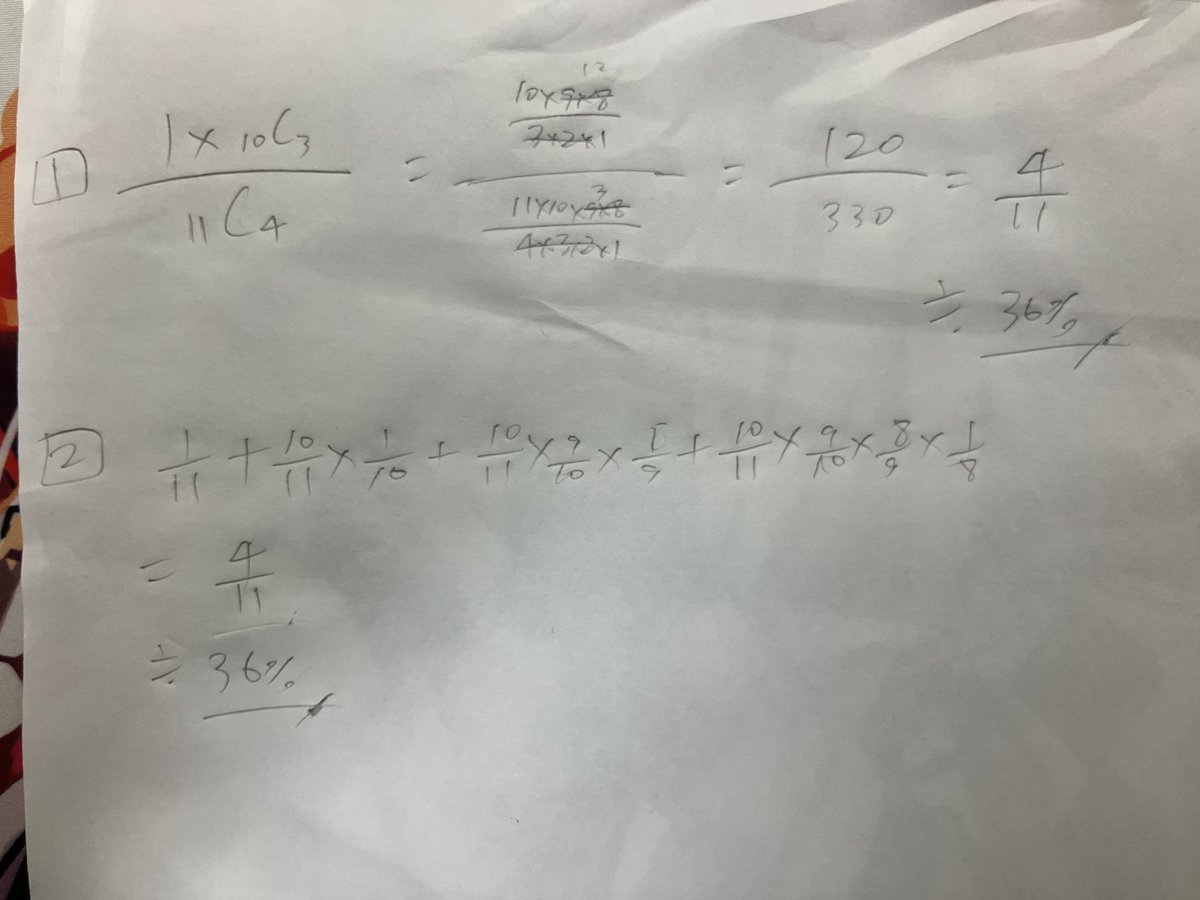 1 (1 × 10C3) / (11C4) = ((10×9×8)/(3×2×1)) / ((11×10×9×8)/(4×3×2×1)) = 120/330 = 4/11
12
3
≒ 36%
2 1/11 + 10/11 × 1/10 + 10/11 × 9/10 × 1/9 + 10/11 × 9/10 × 8/9 × 1/8
= 4/11
≒ 36%